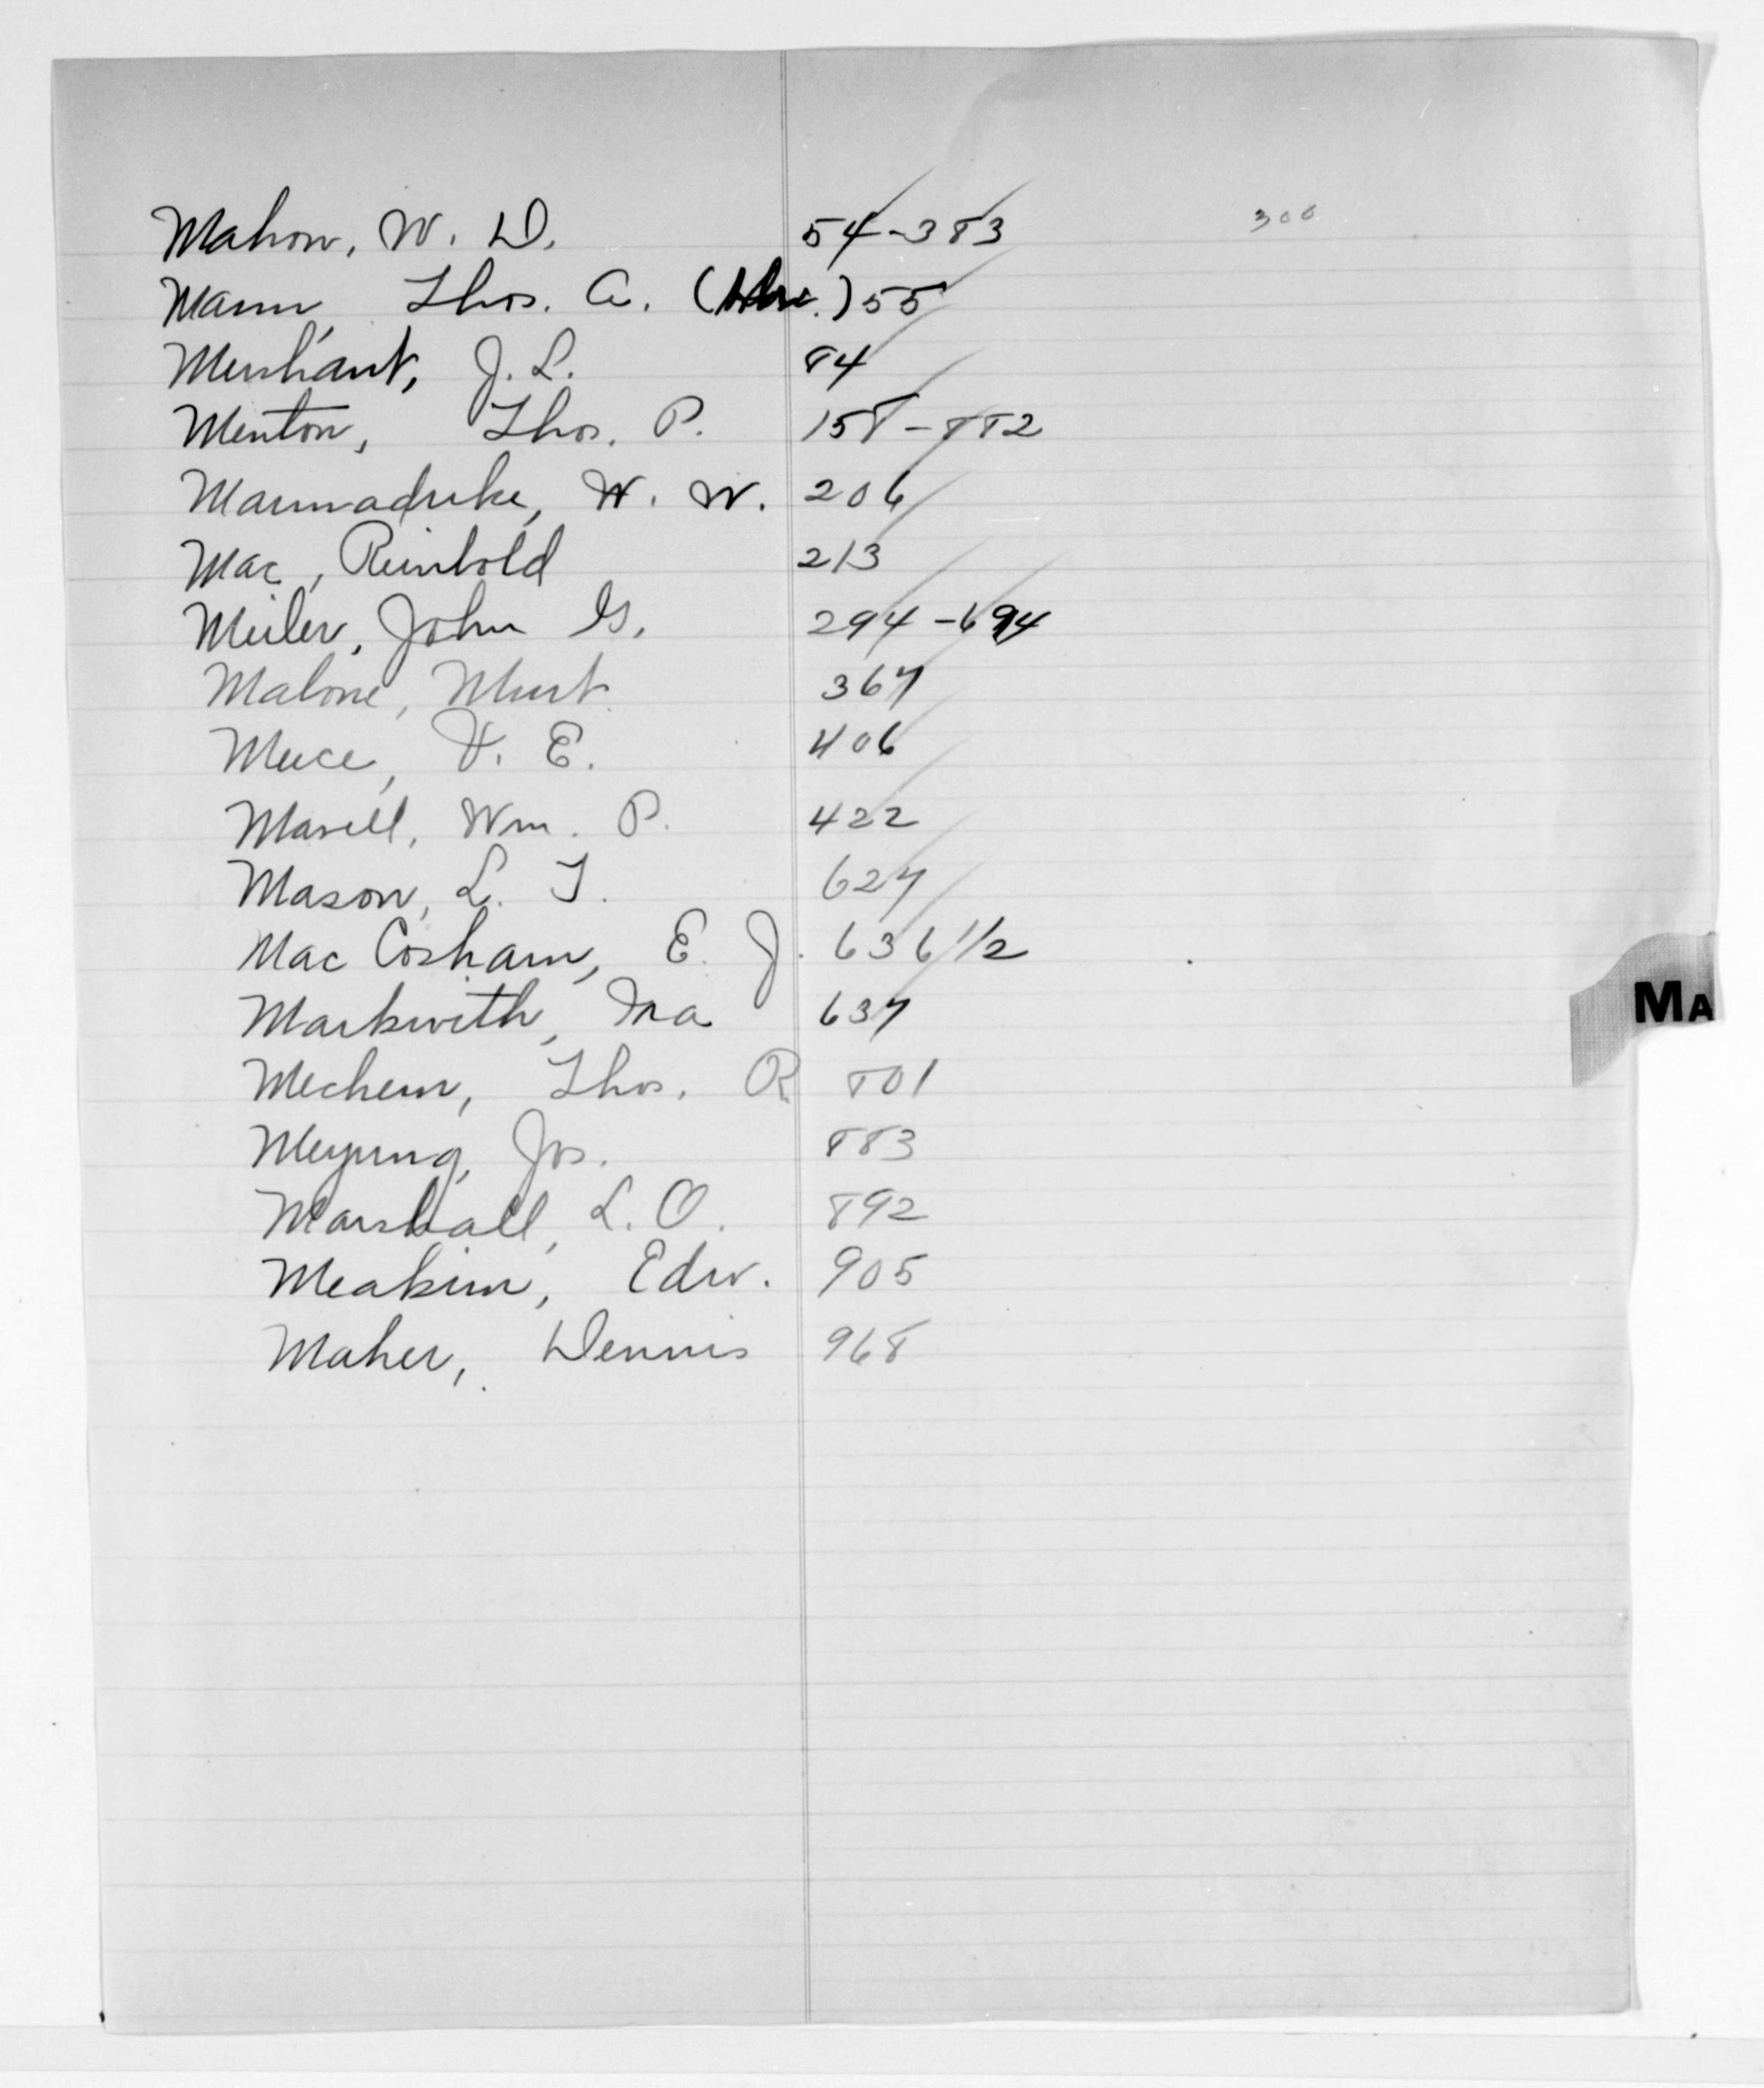 Mahon, W. D. 54-383 300
Mann, Thos. A. ( ) 55
Merchant, J. L. 84
Menton, Thos. P. 158-882
Marmaduke, H. W. 206
Mac, Reinhold 213
Meiler, John G. 294-694
Malone, Murt 367
Meece, V. E. 406
Masell, Wm. P. 422
Mason, L. T. 627
Mac Cosham, E. J. 636 1/2
Markwith, Ira 637
MA
Mechem, Thos. R 801
Meyung, Jos. 883
Marshall, L. O. 892
Meakim, Edw. 905
Maher, Dennis 968